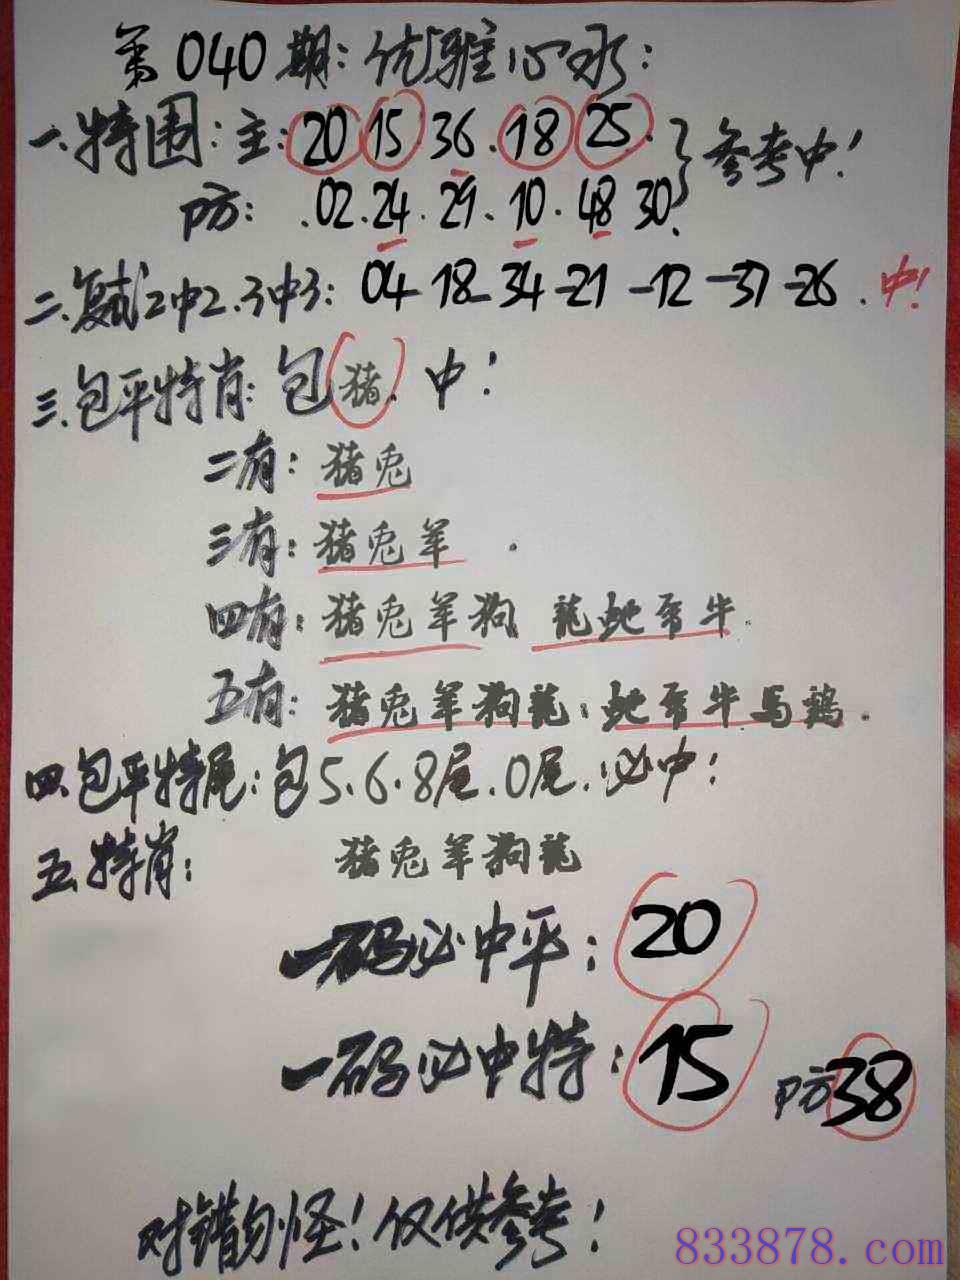 第040期:优雅心水:
一.特围:主:20 15.36.18 25.}参考中!
防:.02.24.29.10.48 30.
二.复试2中2.3中3:04-18-34-21-12-37-26.中!
三.包平特肖:包猪.中!
二有:猪兎
三有:猪兎羊.
四有:猪兎羊狗 龍蛇牛.
五有:猪兎羊狗龍:蛇牛馬鷄.
四.包平特尾:包5.6.8尾.0尾.必中!
五.特肖:猪兎羊狗龍
一码必中平:20
一码必中特:15 防38
对错勿怪!仅供参考!
833878.com